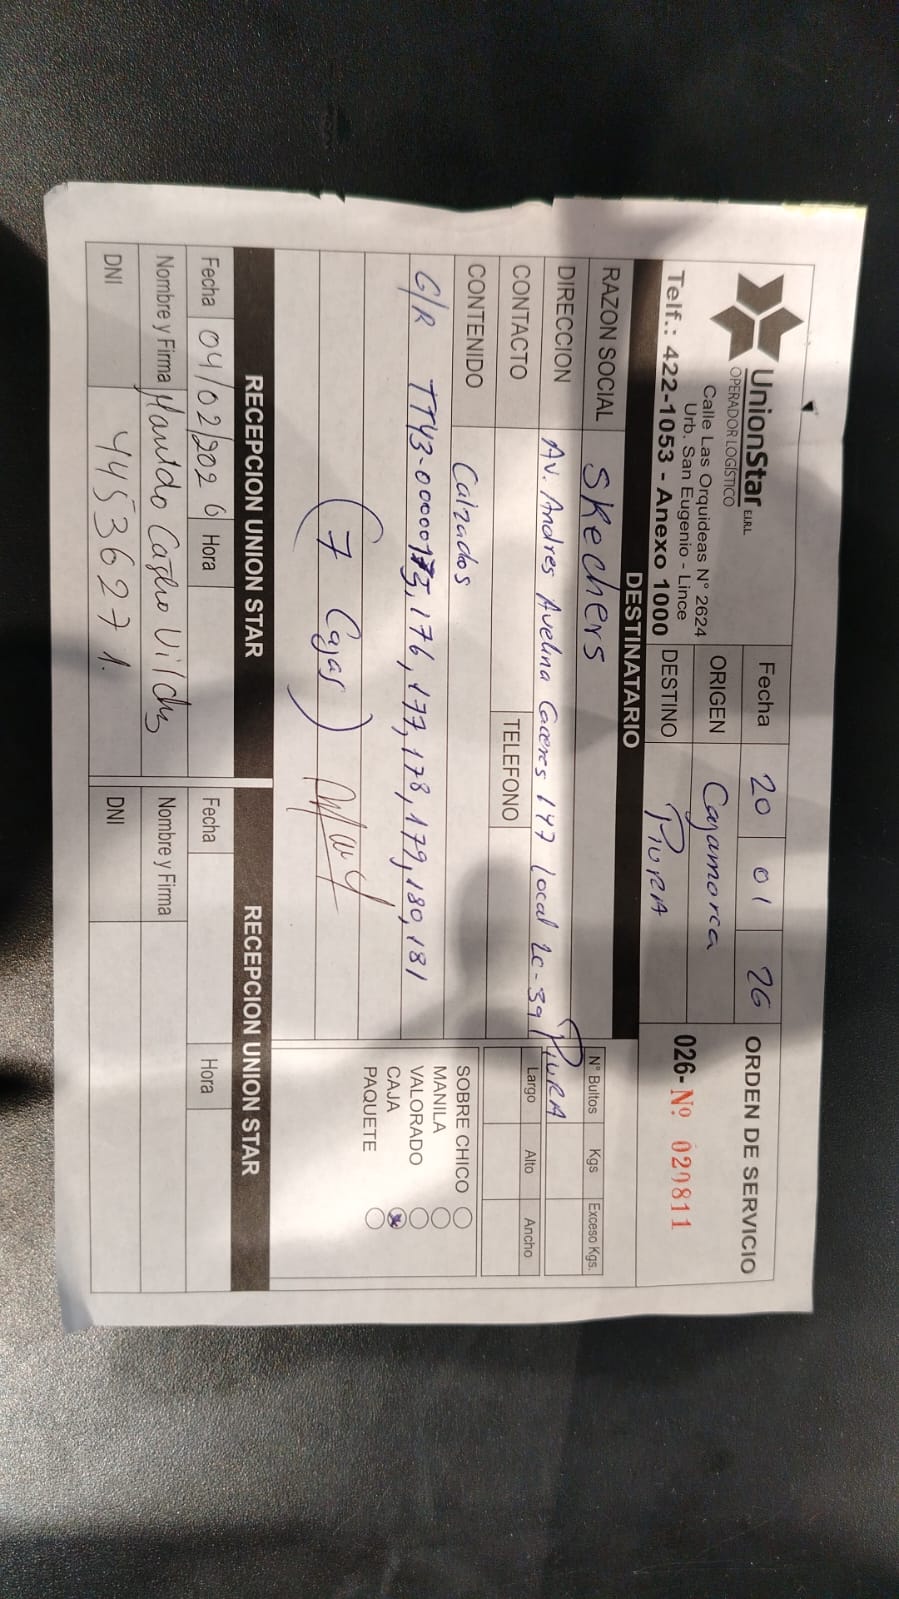 UnionStar E.I.R.L
OPERADOR LOGÍSTICO
Calle Las Orquideas N° 2624
Urb. San Eugenio - Lince
Telf.: 422-1053 - Anexo 1000
Fecha 20 01 26
ORIGEN Cajamarca
DESTINO PIURA
ORDEN DE SERVICIO
026- Nº 020811
DESTINATARIO
RAZON SOCIAL Skechers
DIRECCION Av. Andres Avelina Caceres 147 local lc-39 PIURA
CONTACTO TELEFONO
CONTENIDO Calzados
G/R TT43-00000175, 176, 177, 178, 179, 180, 181
(7 Cajas)
N° Bultos Kgs Exceso Kgs.
Largo Alto Ancho
SOBRE CHICO
MANILA
VALORADO
CAJA x
PAQUETE
RECEPCION UNION STAR
Fecha 04/02/2026 Hora
Nombre y Firma Castro Vilchz
DNI 44536271.
RECEPCION UNION STAR
Fecha Hora
Nombre y Firma
DNI